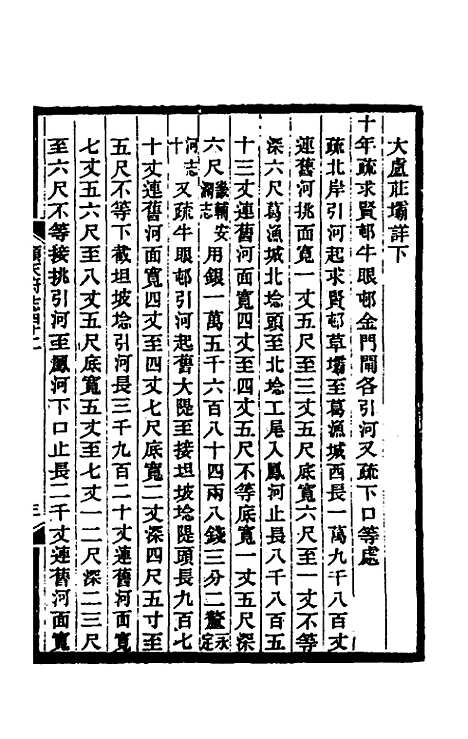 大盧莊壩詳下
十年疏求賢邨牛眼邨金門閘各引河又疏下口等處
疏北岸引河起求賢邨草壩至葛漁城西長一萬九千八百丈
連舊河挑面寬一丈五尺至三丈五尺底寬六尺至一丈不等
深六尺葛漁城北埝頭至北埝工尾入鳳河止長八千八百五
十三丈連舊河面寬四丈至四丈五尺不等底寬一丈五尺深
六尺畿輔安瀾志用銀一萬五千六百八十四兩八錢三分二釐永定
河志十又疏牛眼邨引河起舊大隄至接坦坡埝隄頭長九百七
十丈連舊河面寬四丈至四丈七尺底寬二丈深四尺五寸至
五尺不等下截坦坡埝引河長三千九百二十丈連舊河面寬
七丈五六尺至八丈五尺底寬五丈至七丈一二尺深二三尺
至六尺不等接挑引河至鳳河下口止長二千丈連舊河面寬
順天府志四十二
三